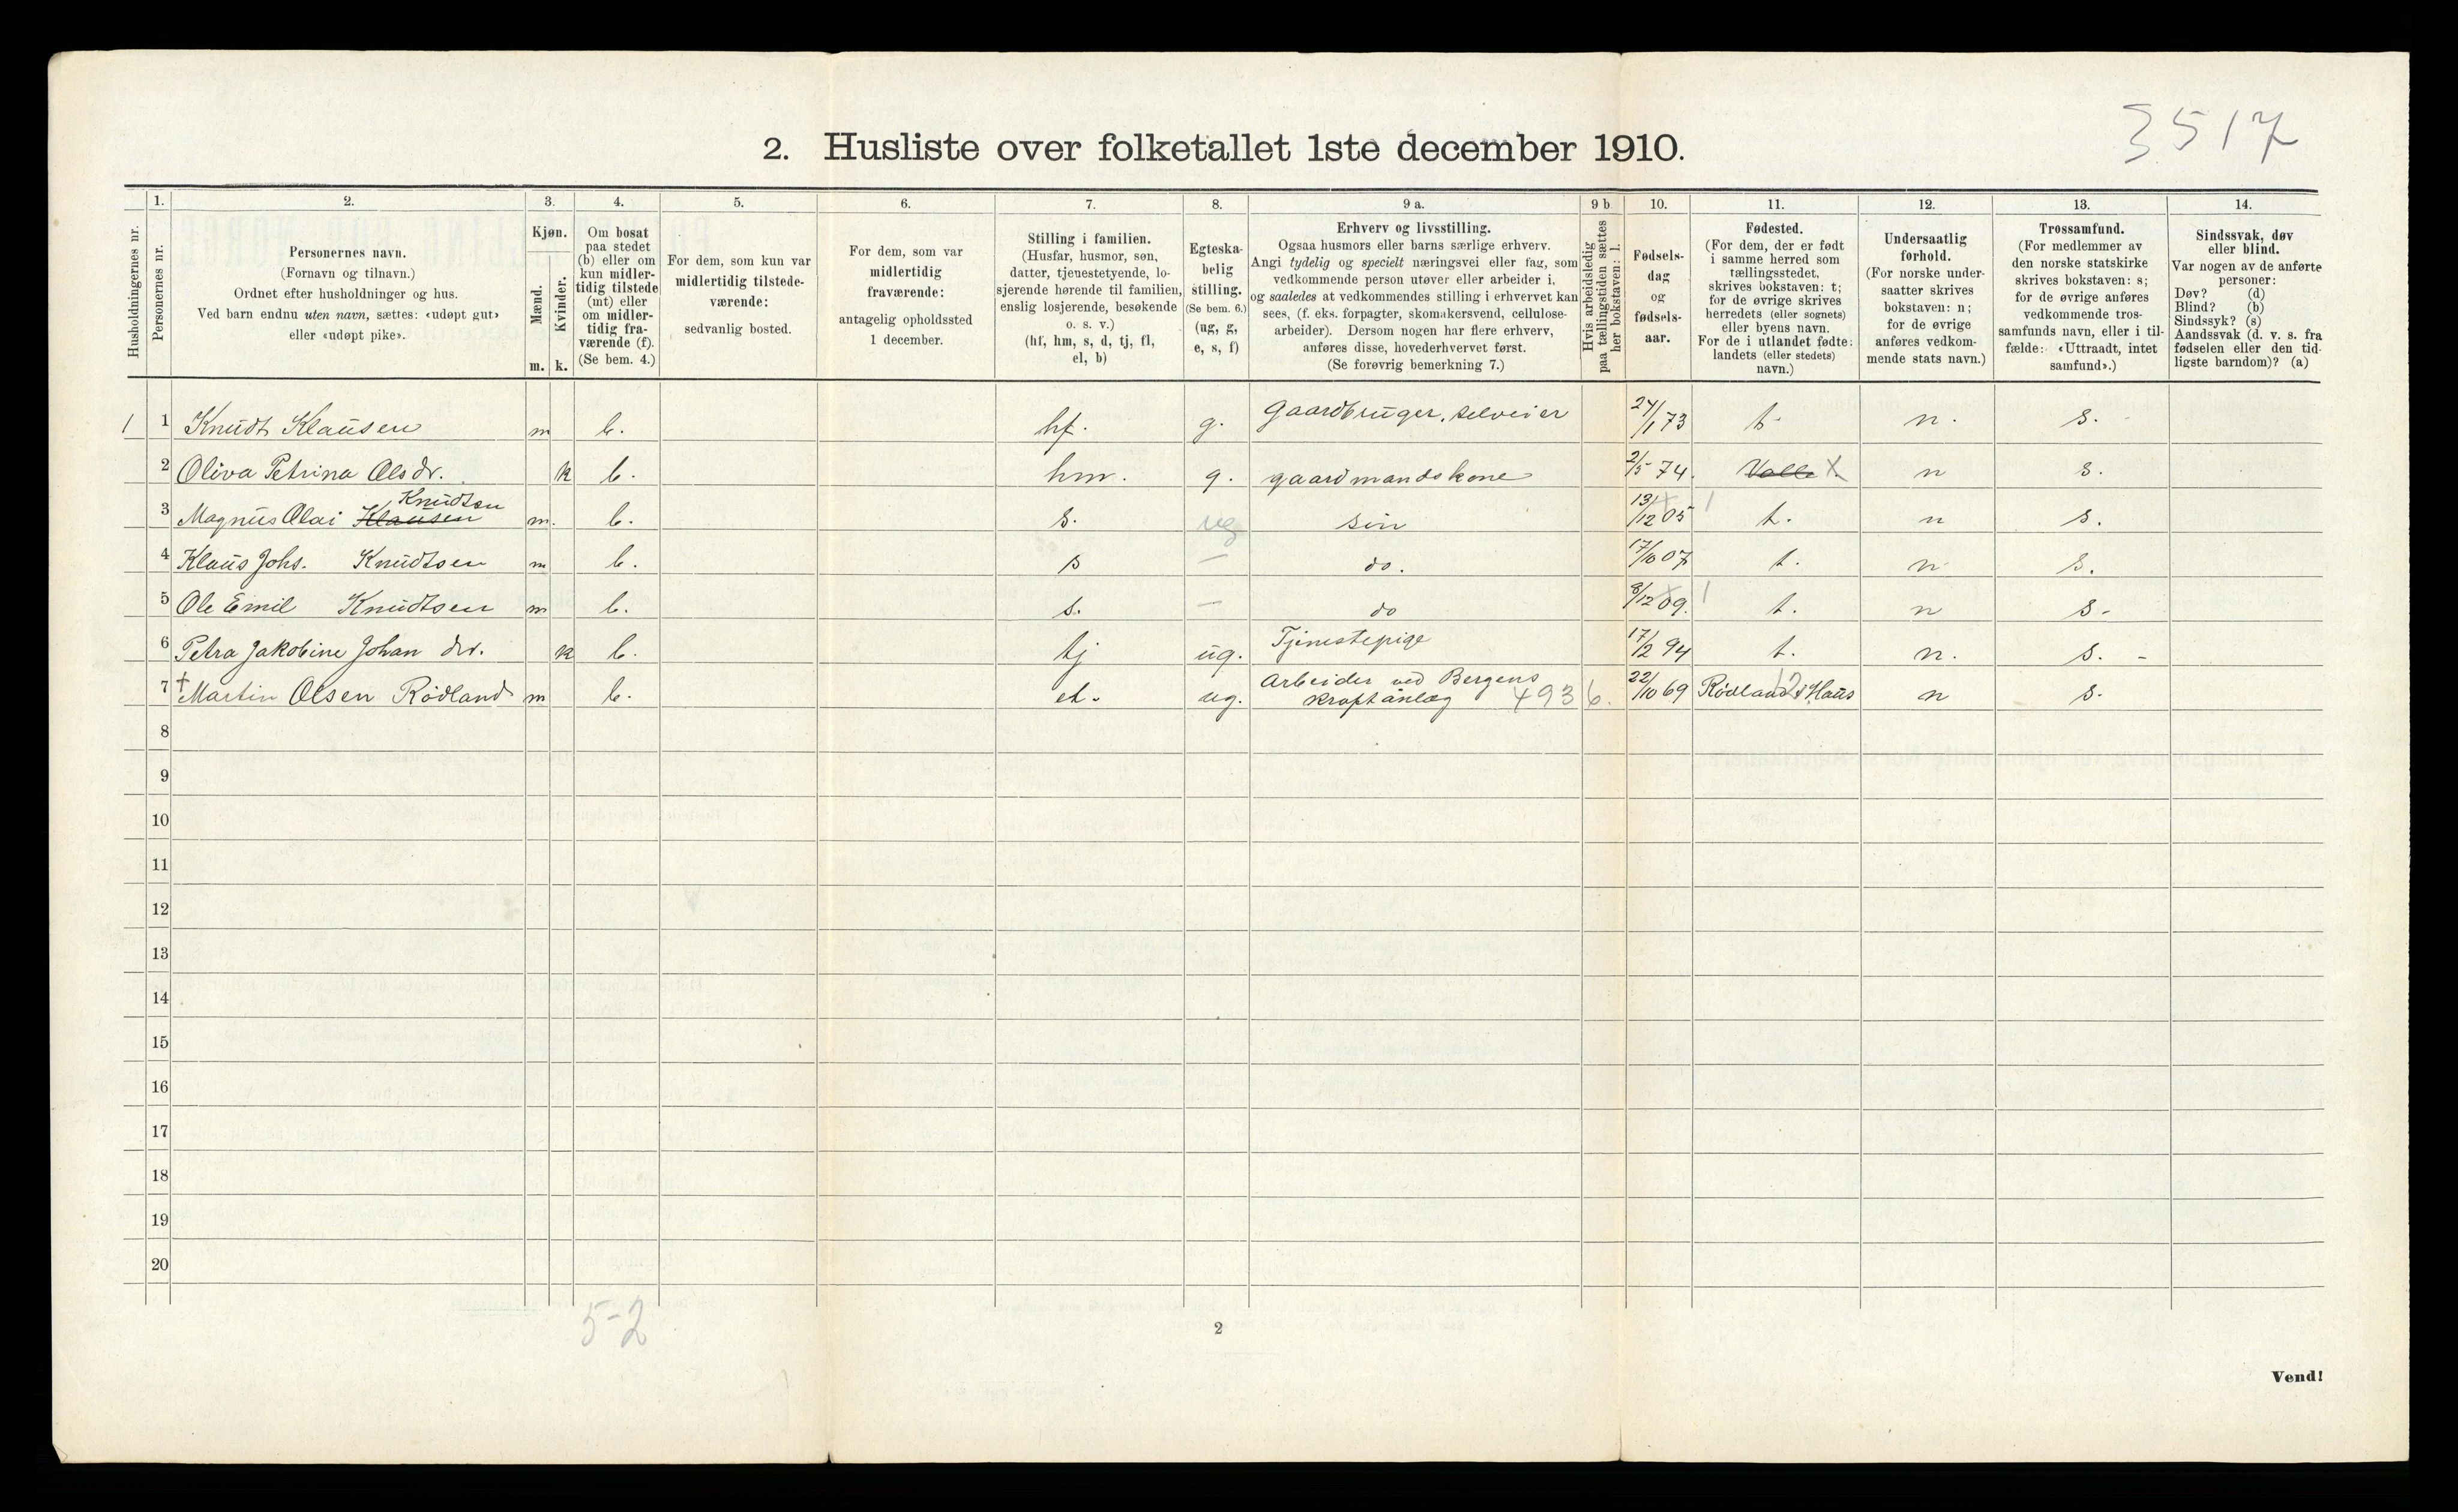 3517
2. Husliste over folketallet 1ste december 1910.
Husholdningernes nr.
1. Personernes nr.
2.
Personernes navn.
(Fornavn og tilnavn.)
Ordnet efter husholdninger og hus.
Ved barn endnu uten navn, sættes: «udøpt gut»
eller «udøpt pike».
3.
Kjøn.
Mænd. Kvinder.
m. k.
4.
Om bosat
paa stedet
(b) eller om
kun midler-
tidig tilstede
(mt) eller
om midler-
tidig fra-
værende (f).
(Se bem. 4.)
5.
For dem, som kun var
midlertidig tilstede-
værende:
sedvanlig bosted.
6.
For dem, som var
midlertidig
fraværende:
antagelig opholdssted
1 december.
7.
Stilling i familien.
(Husfar, husmor, søn,
datter, tjenestetyende, lo-
sjerende hørende til familien,
enslig losjerende, besøkende
o. s. v.)
(hf, hm, s, d, tj, fl,
el, b)
8.
Egteska-
belig
stilling.
(Se bem. 6.)
(ug, g,
e, s, f)
9 a.
Erhverv og livsstilling.
Ogsaa husmors eller barns særlige erhverv.
Angi tydelig og specielt næringsvei eller fag, som
vedkommende person utøver eller arbeider i,
og saaledes at vedkommendes stilling i erhvervet kan
sees, (f. eks. forpagter, skomakersvend, cellulose-
arbeider). Dersom nogen har flere erhverv,
anføres disse, hovederhvervet først.
(Se forøvrig bemerkning 7.)
9 b
Hvis arbeidsledig
paa tællingstiden sættes
her bokstaven: l.
10.
Fødsels-
dag
og
fødsels-
aar.
11.
Fødested.
(For dem, der er født
i samme herred som
tællingsstedet,
skrives bokstaven: t;
for de øvrige skrives
herredets (eller sognets)
eller byens navn.
For de i utlandet fødte:
landets (eller stedets)
navn.)
12.
Undersaatlig
forhold.
(For norske under-
saatter skrives
bokstaven: n;
for de øvrige
anføres vedkom-
mende stats navn.)
13.
Trossamfund.
(For medlemmer av
den norske statskirke
skrives bokstaven: s;
for de øvrige anføres
vedkommende tros-
samfunds navn, eller i til-
fælde: «Uttraadt, intet
samfund».)
14.
Sindssvak, døv
eller blind.
Var nogen av de anførte
personer:
Døv? (d)
Blind? (b)
Sindssyk? (s)
Aandssvak (d. v. s. fra
fødselen eller den tid-
ligste barndom)? (a)
1 1 Knudt Klausen m b. hf. g. Gaardbruger, selveier 24/1 73 t. n. s.
2 Oliva Petrina Olsdr. k b. hm. g. gaardmandskone 2/5 74. Valle X n s.
3 Magnus Olai Klausen Knudtsen m. b. s. ug sin 13/12 05 1 t. n s.
4 Klaus Johs. Knudtsen m b. s — do. 17/10 07 t. n s.
5 Ole Emil Knudtsen m b. s. — do 8/12 09. 1 t. n s-
6 Petra Jakobine Johan dr. k b. tj ug. Tjenestepige 17/2 94 t. n. s. -
7 † Martin Olsen Rödland m b. el. ug. Arbeider ved Bergens
kraftanlæg 4936. 22/10 69 Rödland i Haus 12 n s.
8
9
10
11
12
13
14
15
16
17
18
19
20
5-2
2
Vend!